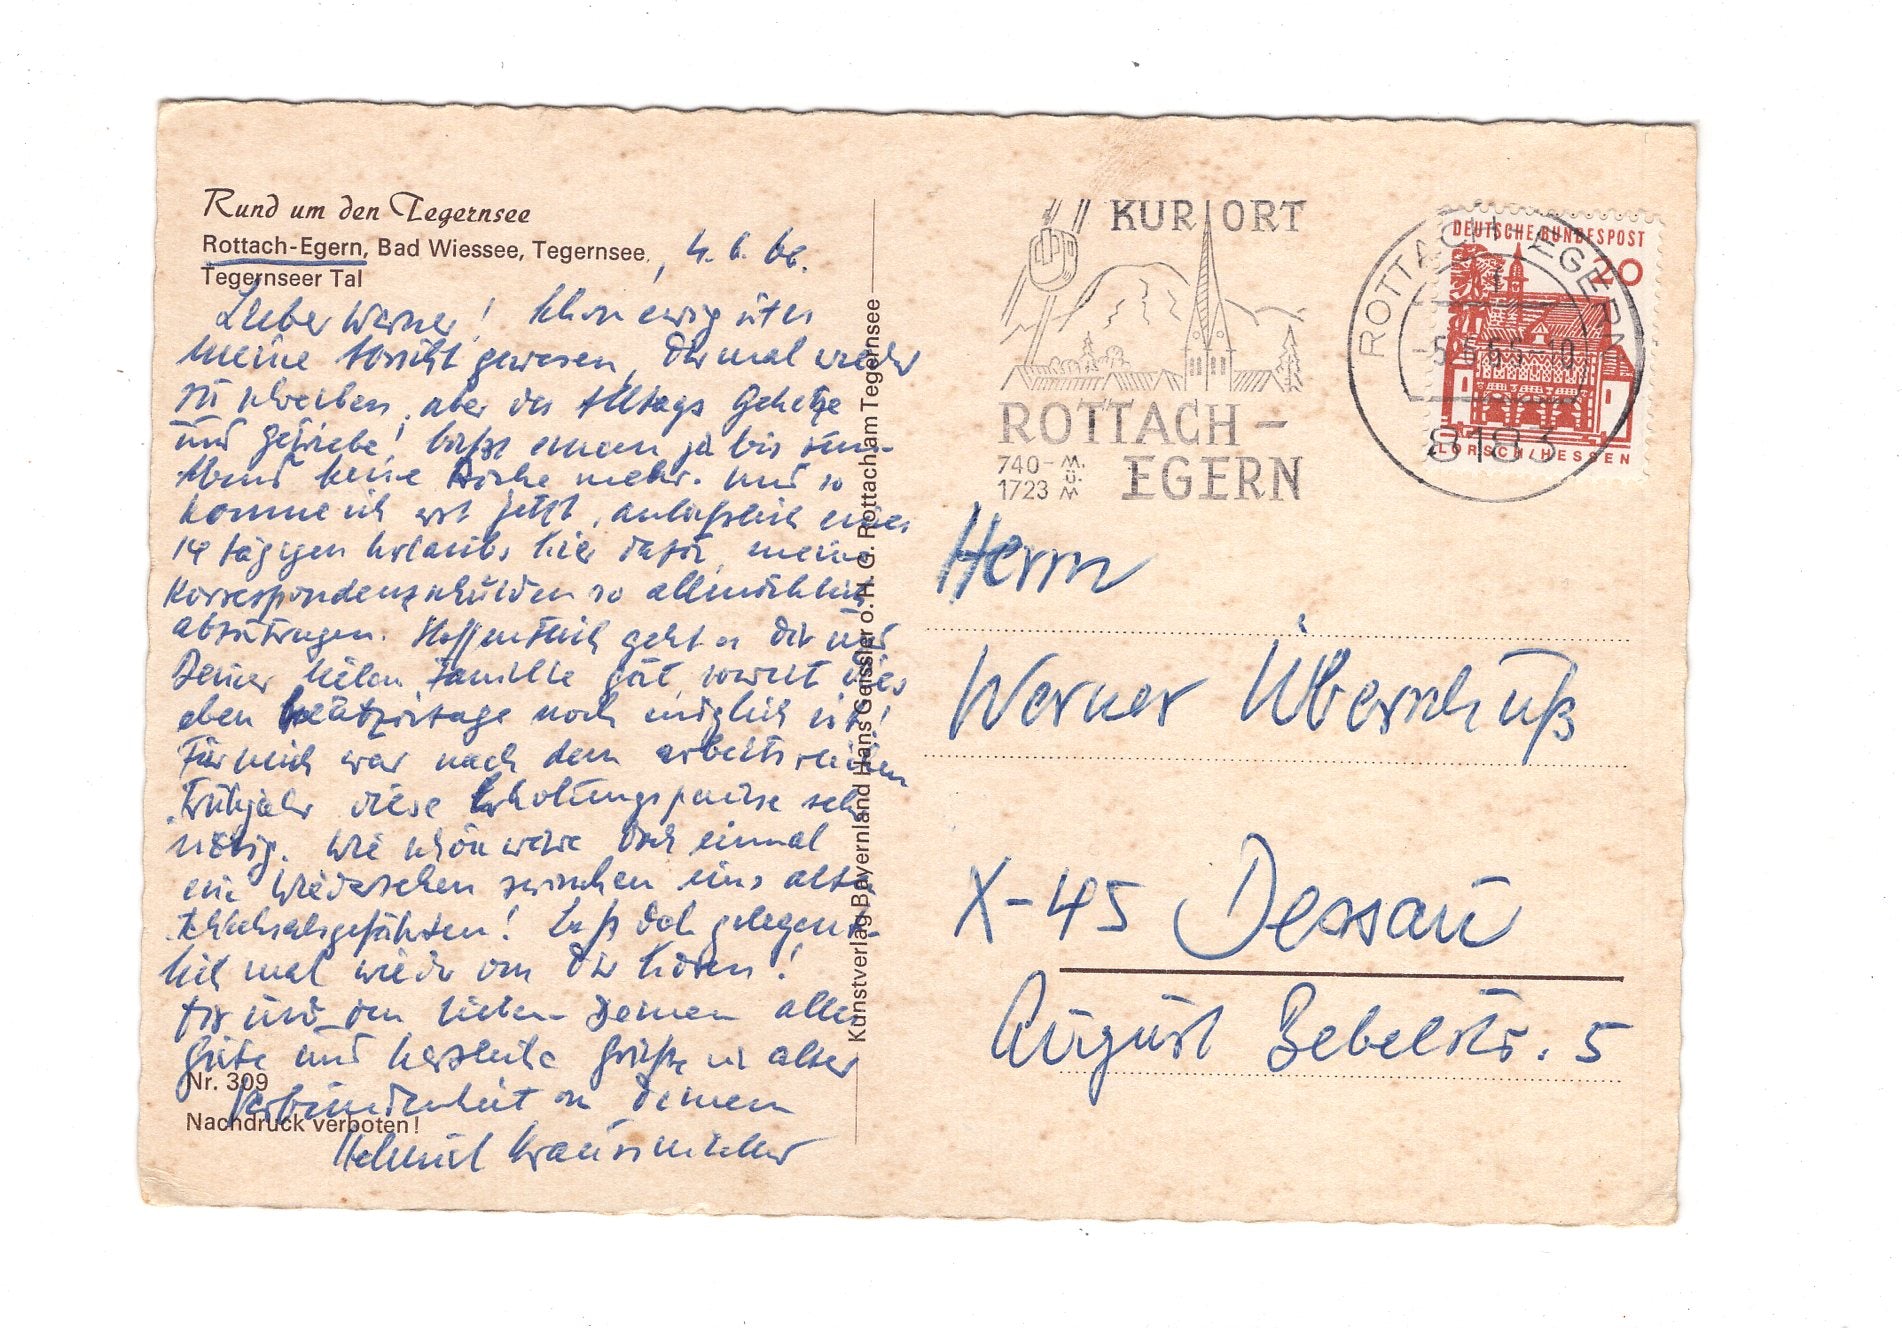 Rund um den Tegernsee
Rottach-Egern, Bad Wiessee, Tegernsee, 4. 6. 66.
Tegernseer Tal
Lieber Werner! Schon ewig ist es
meine Absicht gewesen, Dir mal wieder
zu schreiben, aber das Alltags Gehetze
und Getriebe! läßt einen ja bis zum
Abend keine Ruhe mehr. Und so
komme ich erst jetzt, anläßlich eines
14 tägigen Urlaubs hier dazu, meine
Korrespondenzschulden so allmählich
abzutragen. Hoffentlich geht es Dir und
Deiner lieben Familie gut, soweit dies
eben heutzutage noch möglich ist!
Für mich war nach dem arbeitsreichen
Frühjahr diese Erholungspause sehr
nötig. Wie schön wäre doch einmal
ein Wiedersehen zwischen uns alten
Schicksalsgefährten! Laß doch gelegent-
lich mal wieder von Dir hören!
Dir und den lieben Deinen alles
Gute und herzliche Grüße in alter
Nr. 309
Verbundenheit von Deinem
Nachdruck verboten!
Helmut
Kunstverlag Bayernland Hans Geissler o.H.G. Rottach am Tegernsee
KURORT
ROTTACH-
EGERN
740- M.
ü.
1723 M
ROTTACH-EGERN
1
-5.6.66-10
8183
DEUTSCHE BUNDESPOST
20
LORSCH/HESSEN
Herrn
Werner Überschuß
X-45 Dessau
August Bebelstr. 5